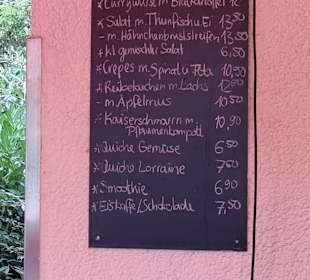 *Currywurst m. Bratkartoffel
*Salat m. Thunfisch u Ei 13,50
- m. Hähnchenbruststreifen 13,50
*kl gemischter Salat 6,50
*Crepes m. Spinat u Feta 10,50
*Reibekuchen m. Lachs 12,80
- m Apfelmus 10,50
*Kaiserschmarrn m. 10,90
Pflaumenkompott
*Quiche Gemüse 6,50
*Quiche Lorraine 7,60
*Smoothie 6,90
*Eiskaffe/Schokolade 7,50